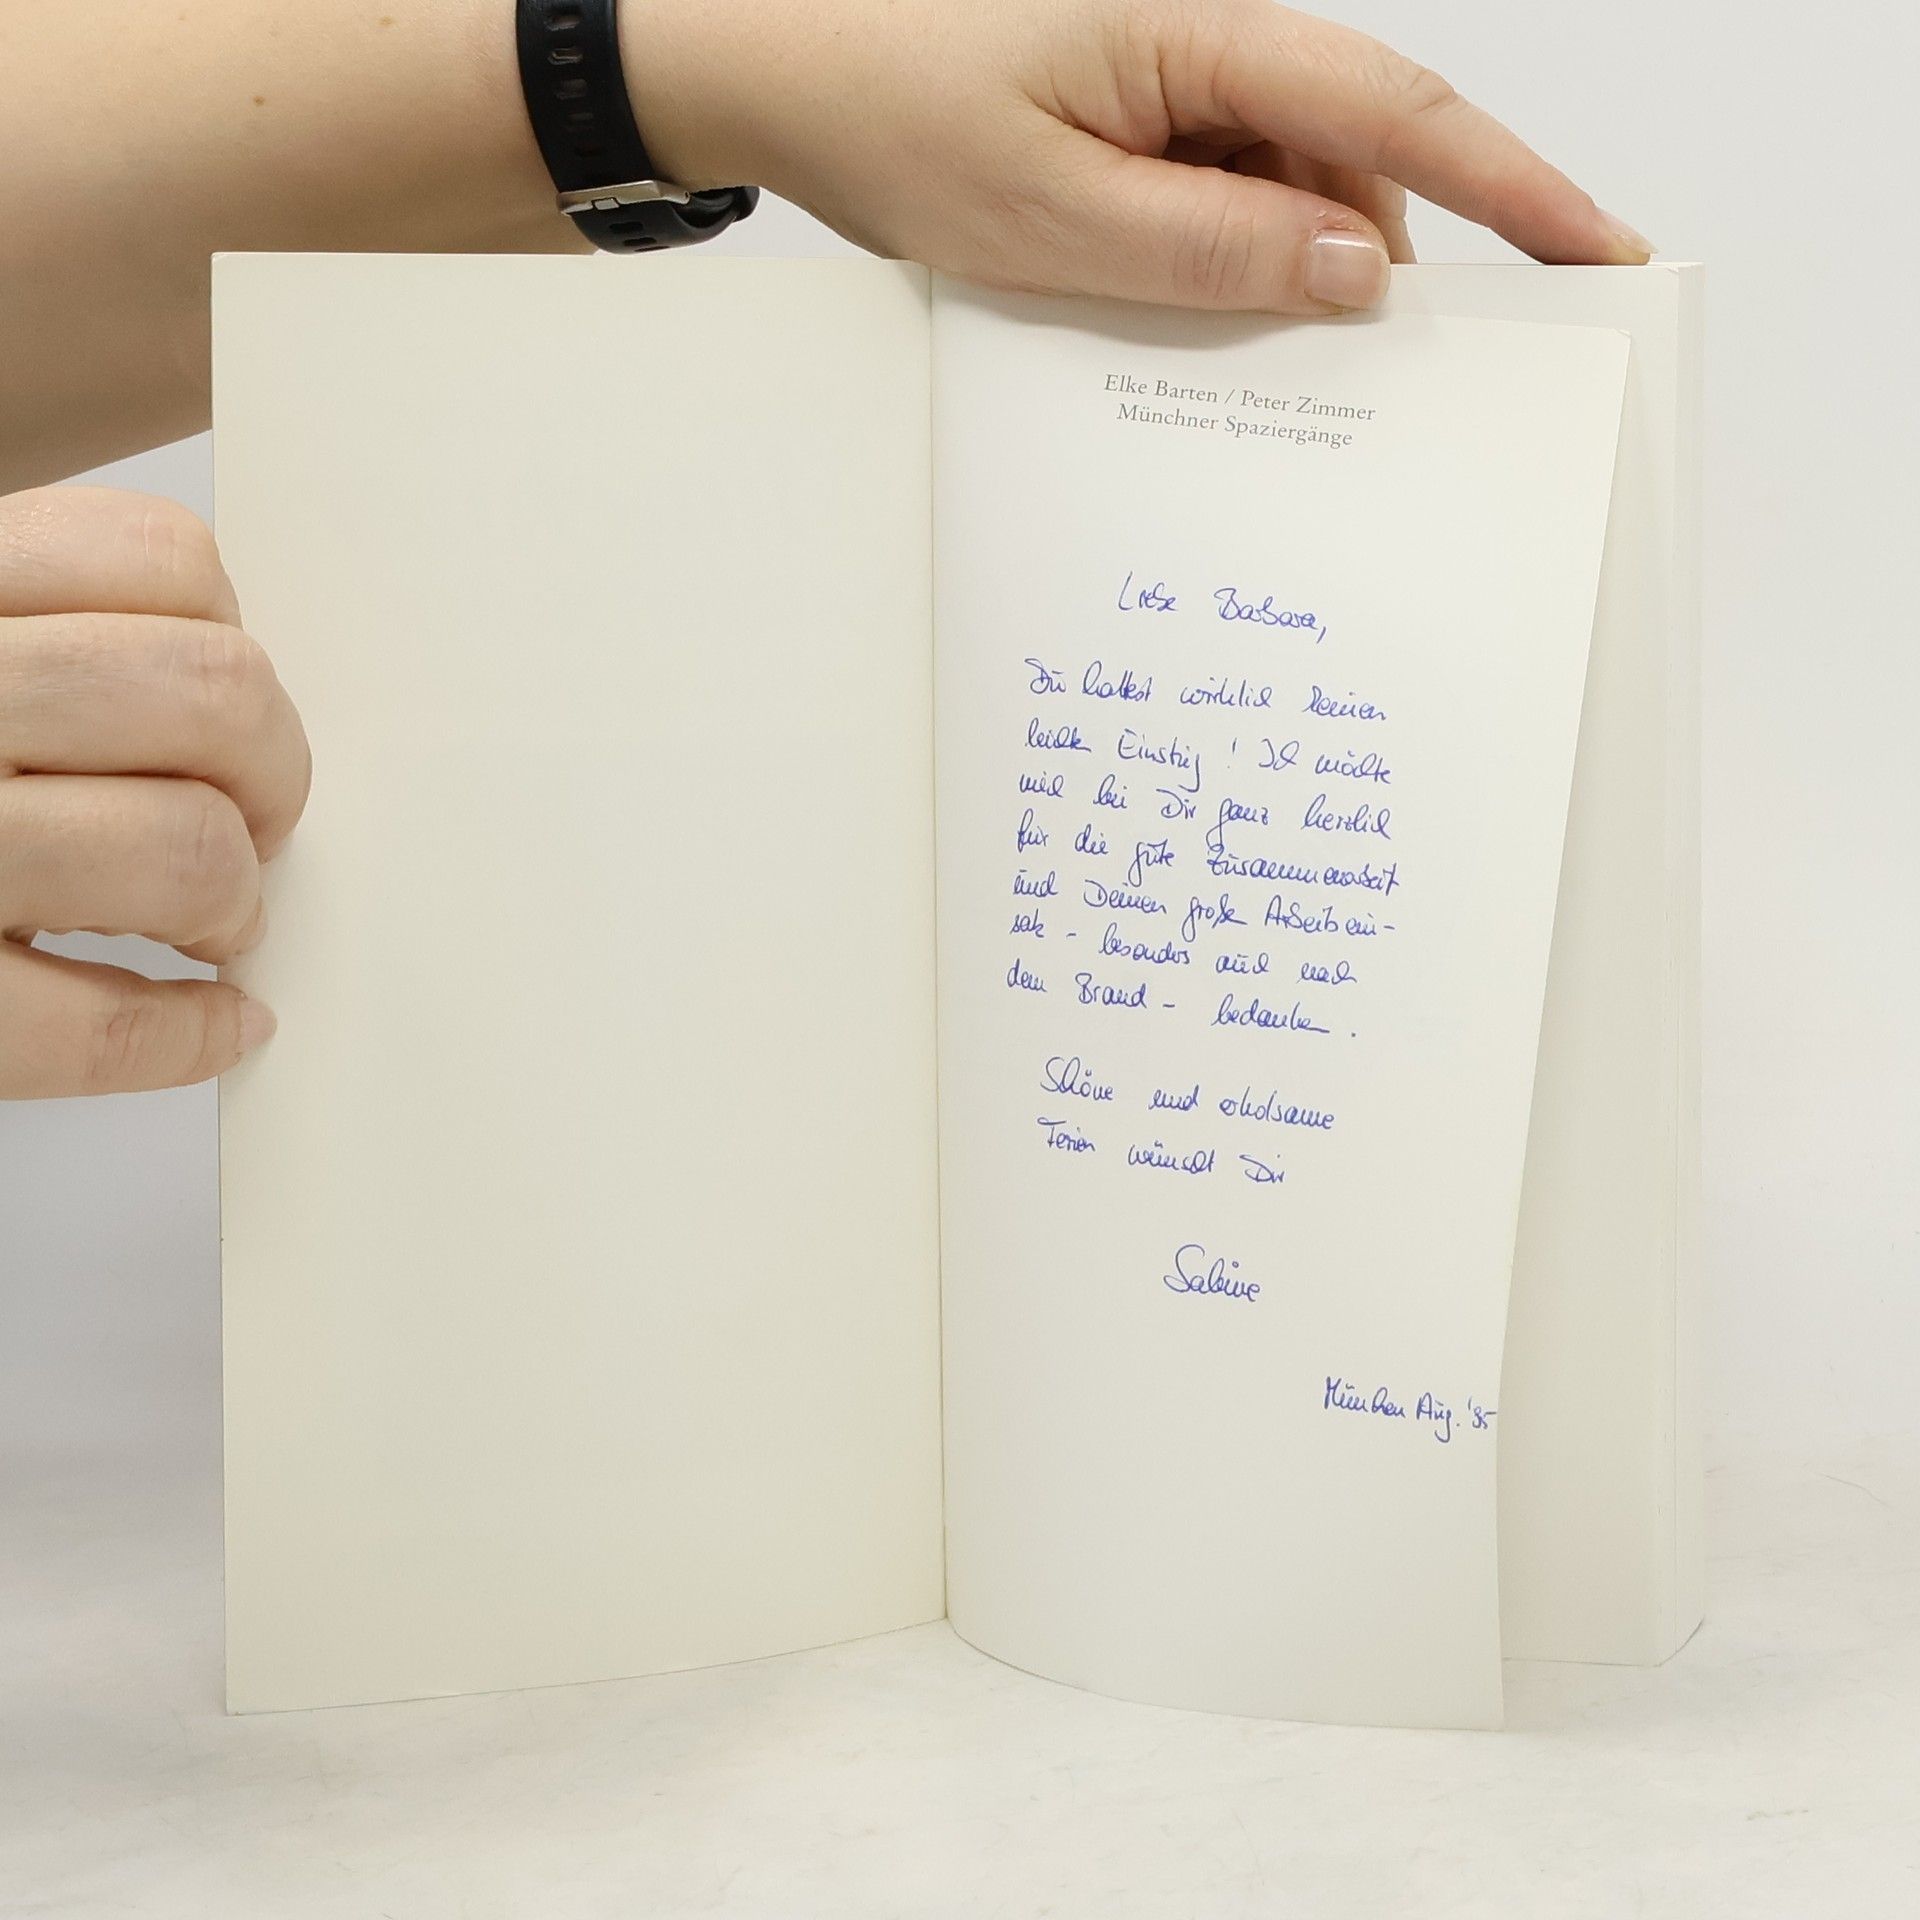 Elke Barten / Peter Zimmer
Münchner Spaziergänge
Liebe Barbara,
Du hattest wirklich keinen
leichten Einstieg! Ich möchte
mich bei Dir ganz herzlich
für die gute Zusammenarbeit
und Deinen großen Arbeitsein-
satz - besonders auch nach
dem Brand - bedanken.
Schöne und erholsame
Ferien wünscht Dir
Sabine
München Aug. '85